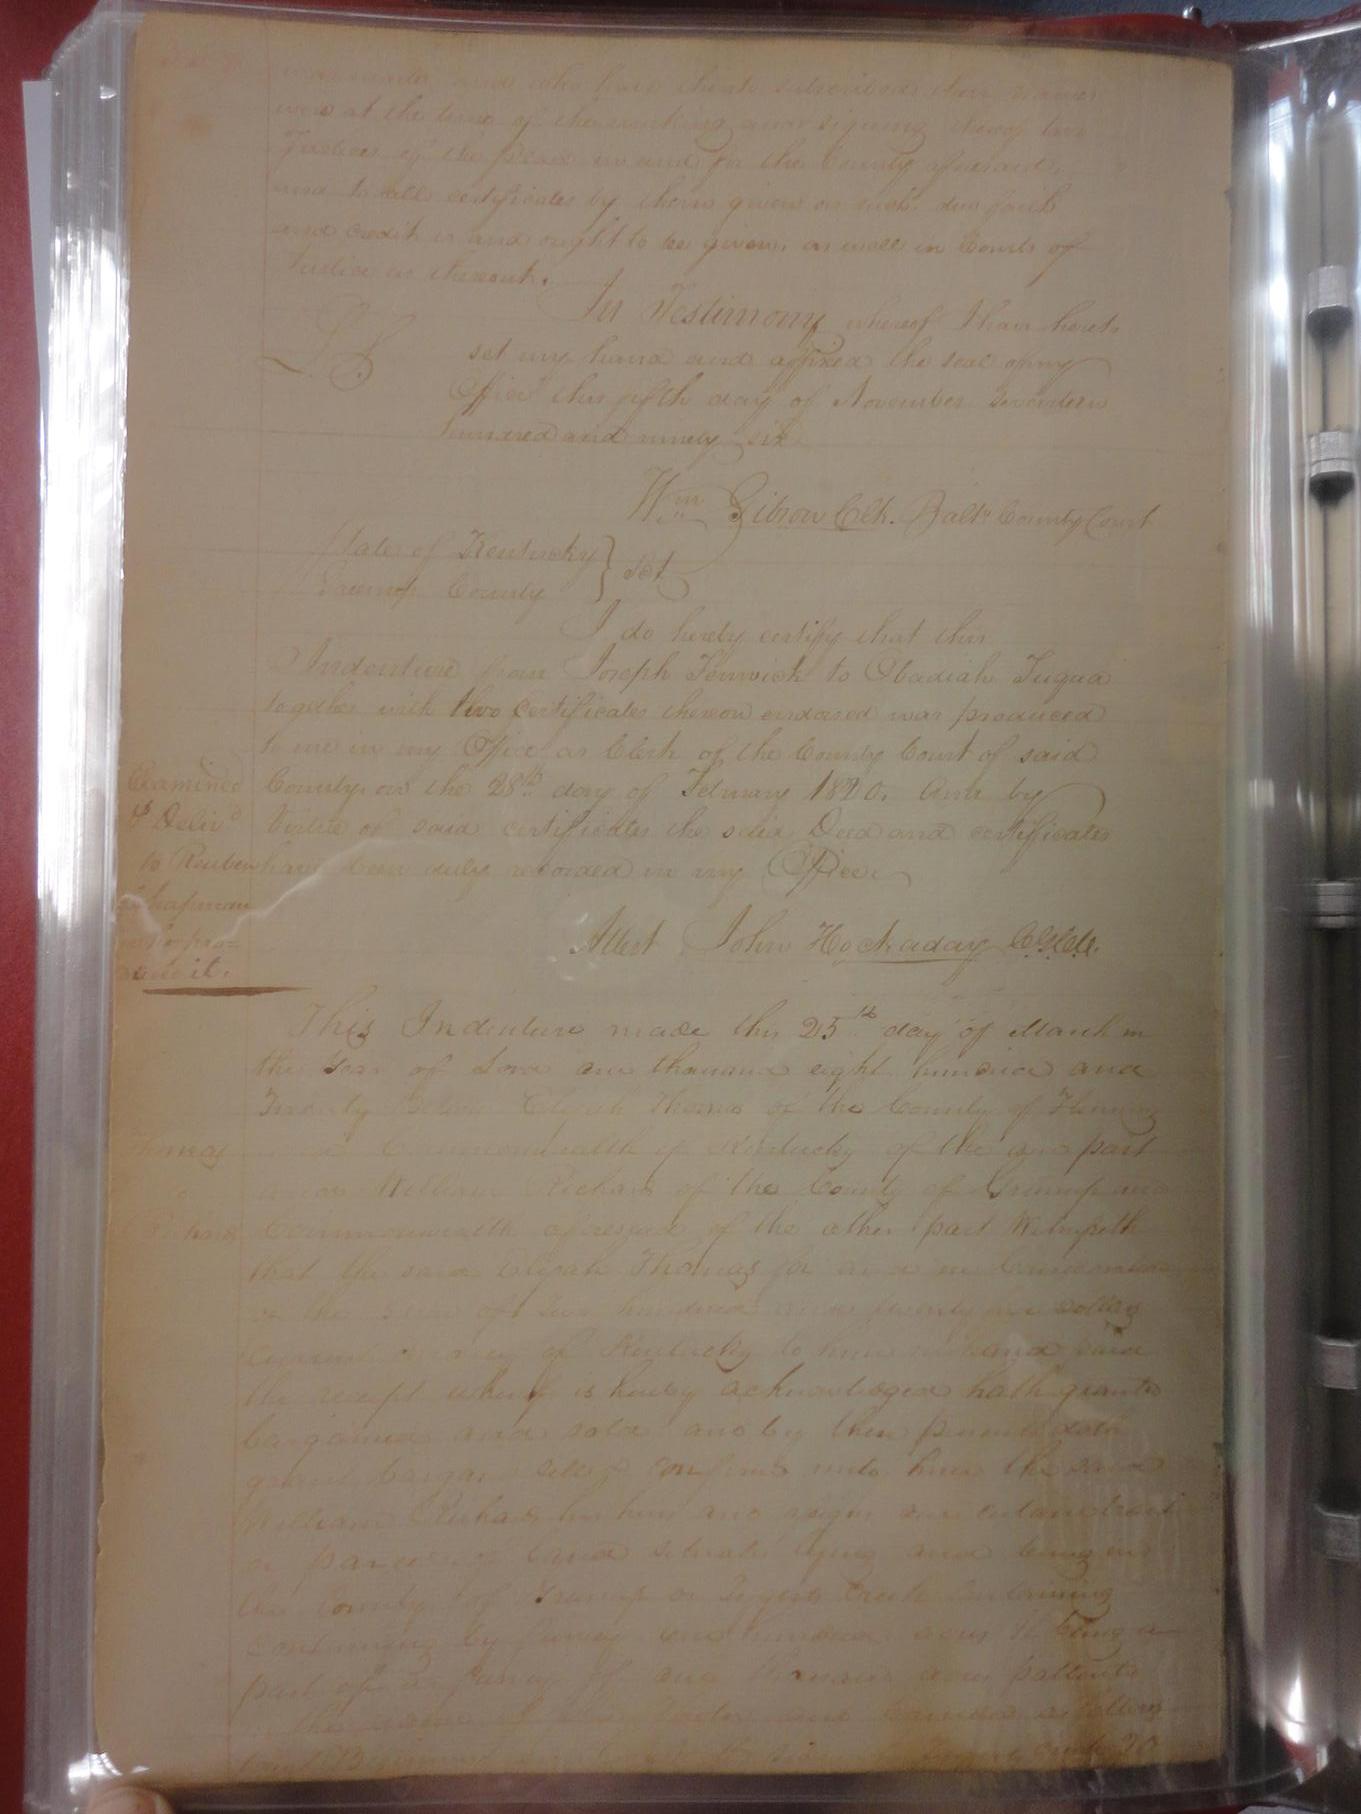 and who have their subscribed their names
were at the time of the making and signing thereof two
Justices of the peace in and for the County aforesaid,
and to all certificates by them given as such due faith
and credit is and ought to be given, as well in Courts of
Justice as thereout.
In Testimony whereof I have hereto
L S
set my hand and affixed the seal of my
Office this fifth day of November seventeen
hundred and ninety six
Wm Gibson Clk. Balt. County Court
State of Kentucky
Greenup County } Sct
I do hereby certify that this
Indenture from Joseph Fenwick to Obadiah Fuqua
together with two certificates thereon endorsed was produced
to me in my Office as Clerk of the County Court of said
Examined
County on the 28th day of February 1820. And by
& Delivd
Virtue of said certificates the said Deed and certificates
to Reuben
have been duly recorded in my Office.
Chapman
Attest John Hockaday C.G.C.C.
This Indenture made this 25th day of March in
the Year of Lord one thousand eight hundred and
Twenty Between Elijah Thomas of the County of Fleming
Thomas
Commonwealth of Kentucky of the one part
to
and William Richards of the County of Greenup and
Richards
Commonwealth aforesaid of the other part Witnesseth
that the said Elijah Thomas for and in Consideration
of the sum of two hundred and twenty dollars
Current money of Kentucky to him in hand paid
the receipt whereof is hereby acknowledged hath granted
bargained and sold and by these presents doth
grant bargain sell & confirm unto him the said
William Richards his heirs and assigns one certain tract
or parcel of land situate lying and being in
the County of Greenup on Tygerts Creek
containing by survey one hundred acres it being a
part of a survey of one thousand acres patented
the name of and bounded as follows